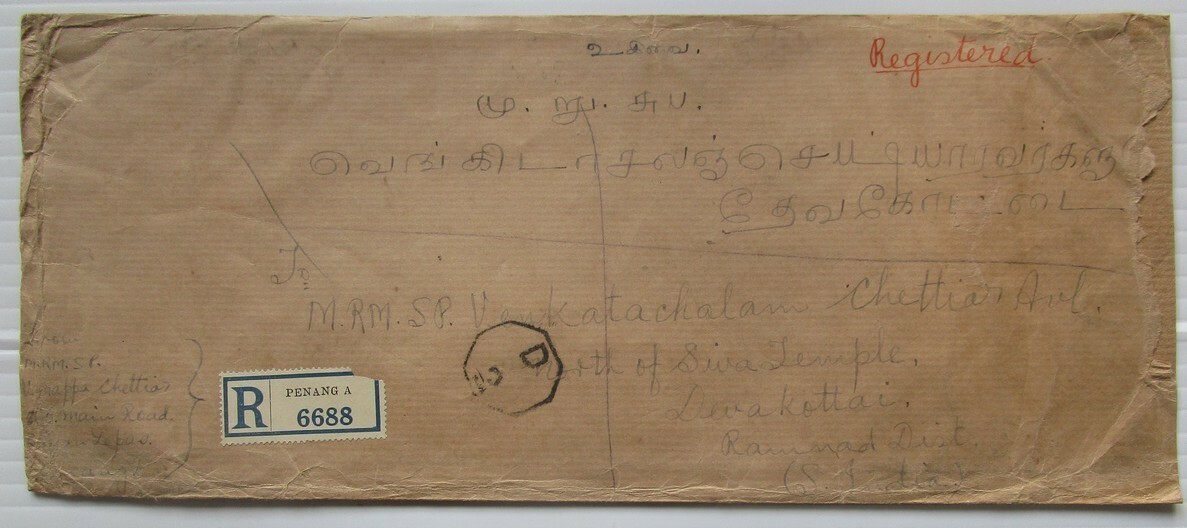 உ சிவ.
Registered
மு. று. சுப.
வெங்கிடாசலஞ்செட்டியாரவர்களு
தேவகோட்டை
To
M.RM.SP. Venkatachalam Chettiar Avl.
North of Siva Temple,
Devakottai.
Ramnad Dist.
(S. India)
From
M.RM.SP.
Chettiar
Main Road
R PENANG A
6688
D